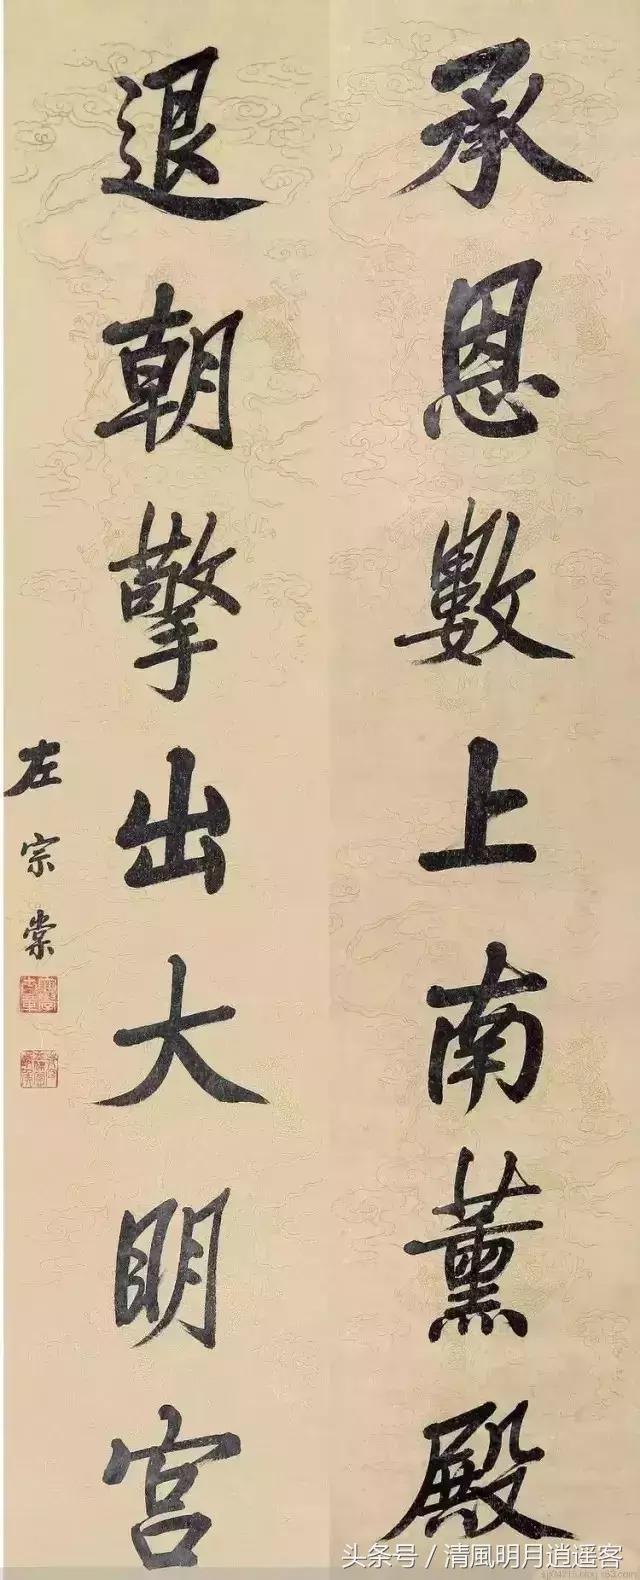 承恩數上南薰殿
退朝擎出大明宫
左宗棠
头条号／清風明月逍遥客